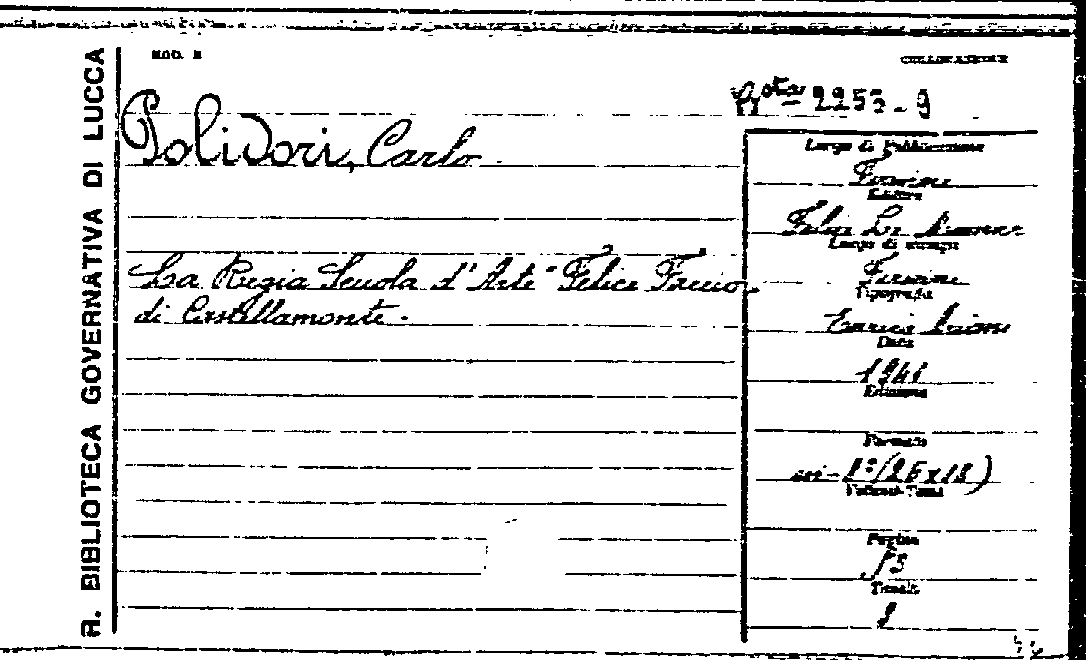 R. BIBLIOTECA GOVERNATIVA DI LUCCA
MOD. B
COLLOCAZIONE
Bta 2253-9
Polidori, Carlo
La Regia Scuola d'Arte "Felice Faccio"
di Castellamonte.
Luogo di Pubblicazione
Firenze
Editore
Felice Le Monnier
Luogo di stampa
Firenze
Tipografia
Enrico Ariani
Data
1941
Edizione
Formato
in-8º (25x18)
Volumi-Tomi
Pagine
Tavole